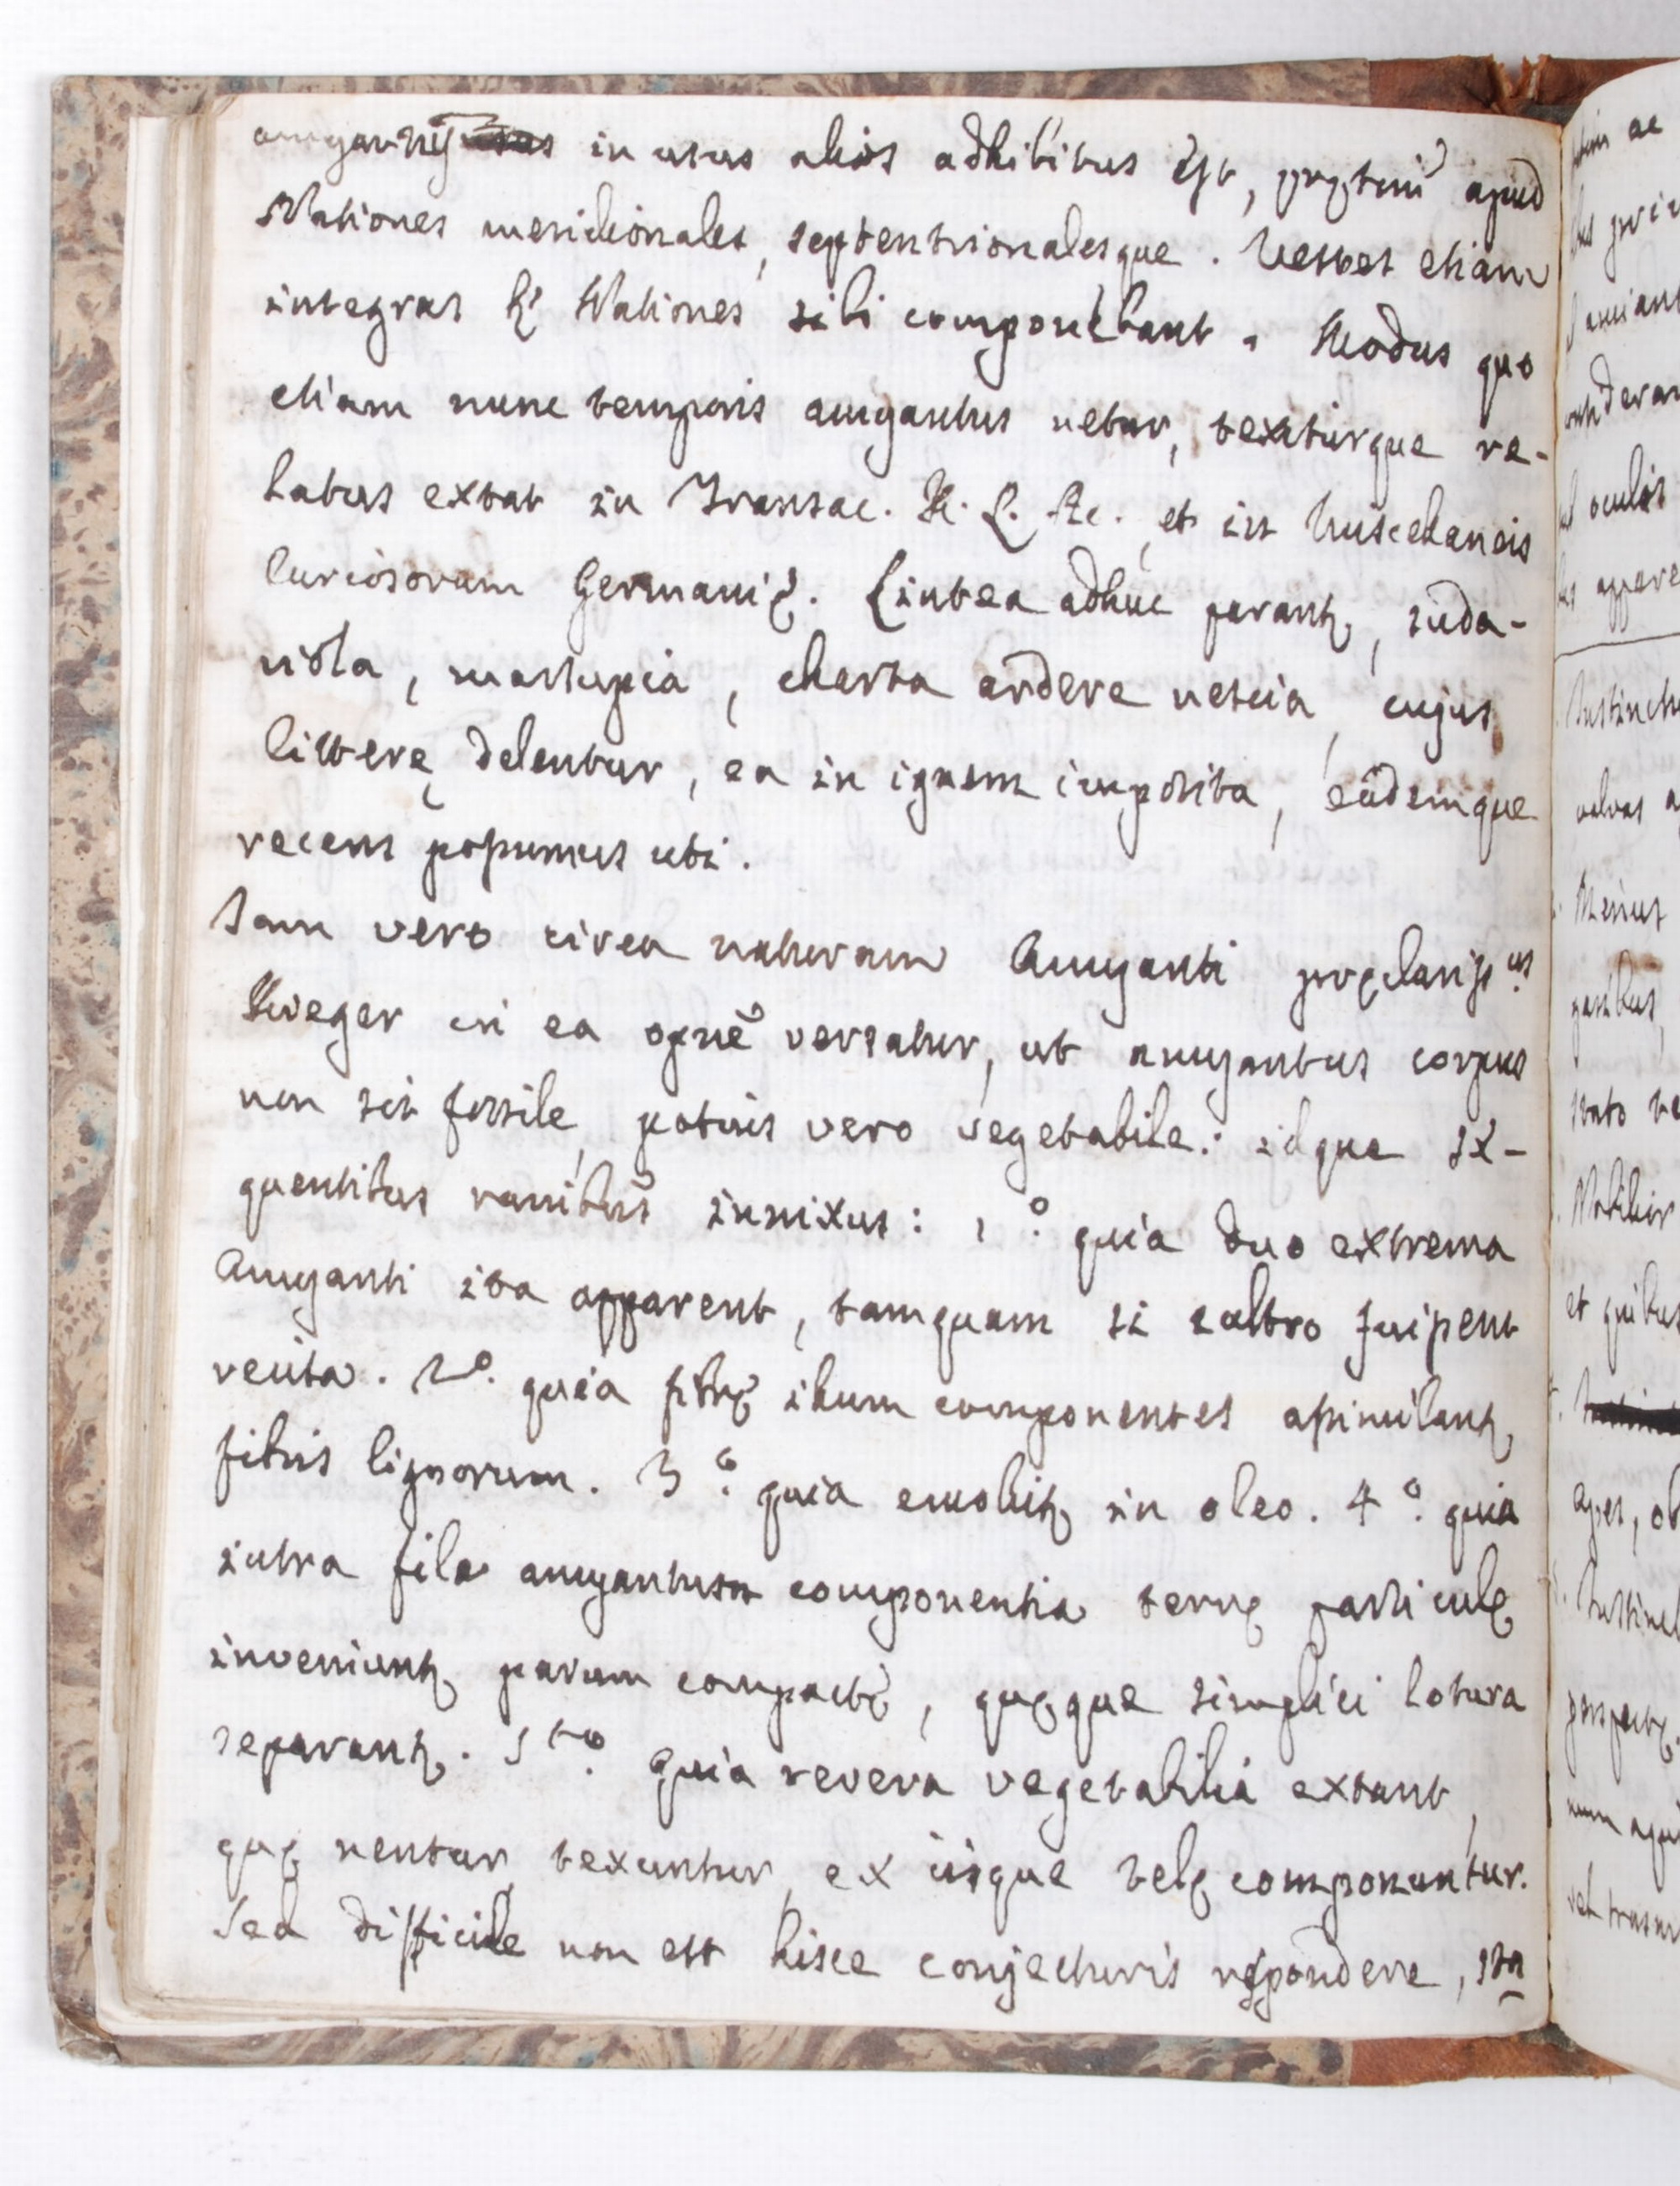 amyanthus in usus alios adhibitus est, pręstim apud
Nationes meridionales, septentrionalesque. Vestes etiam
integras hę Nationes sibi componebant. Modus quo
etiam nunc temporis amyanthus netur, texiturque re-
latus extat in Transac. et in Miscelaneis
Curiosorum Germanię. Lintea adhuc parantq, suda-
riola, marsupia, charta ardere nescia, cujus
litterę delentur, ea in ignem imposita, eademque
recens possumus uti.
Iam vero circa naturam Amyanti pręclariss.us
in ea opne versatur, ut amyantus corpus
non sit fossile, potius vero vegetabile: idque se-
quentibus ranibus innixus: 1.º quia duo extrema
Amyanti ita apparent, tamquam si cultro fuissent
recisa. 2º. quia fibrę illum componentes assimilantq
fibris lignorum. 3.º quia emollitq in oleo. 4.º quia
intra fila amyantum componentia terrę particulę
inveniuntq parum compactę, quęque simplici lotura
separantq. 5to. quia revera vegetabilia extant,
quę nentur, texuntur, ex iisque telę componuntur.
Sed difficile non est hisce conjecturis respondere,
Instinctu
valvas
Minus
Nobilior
et quibus
apes, ob